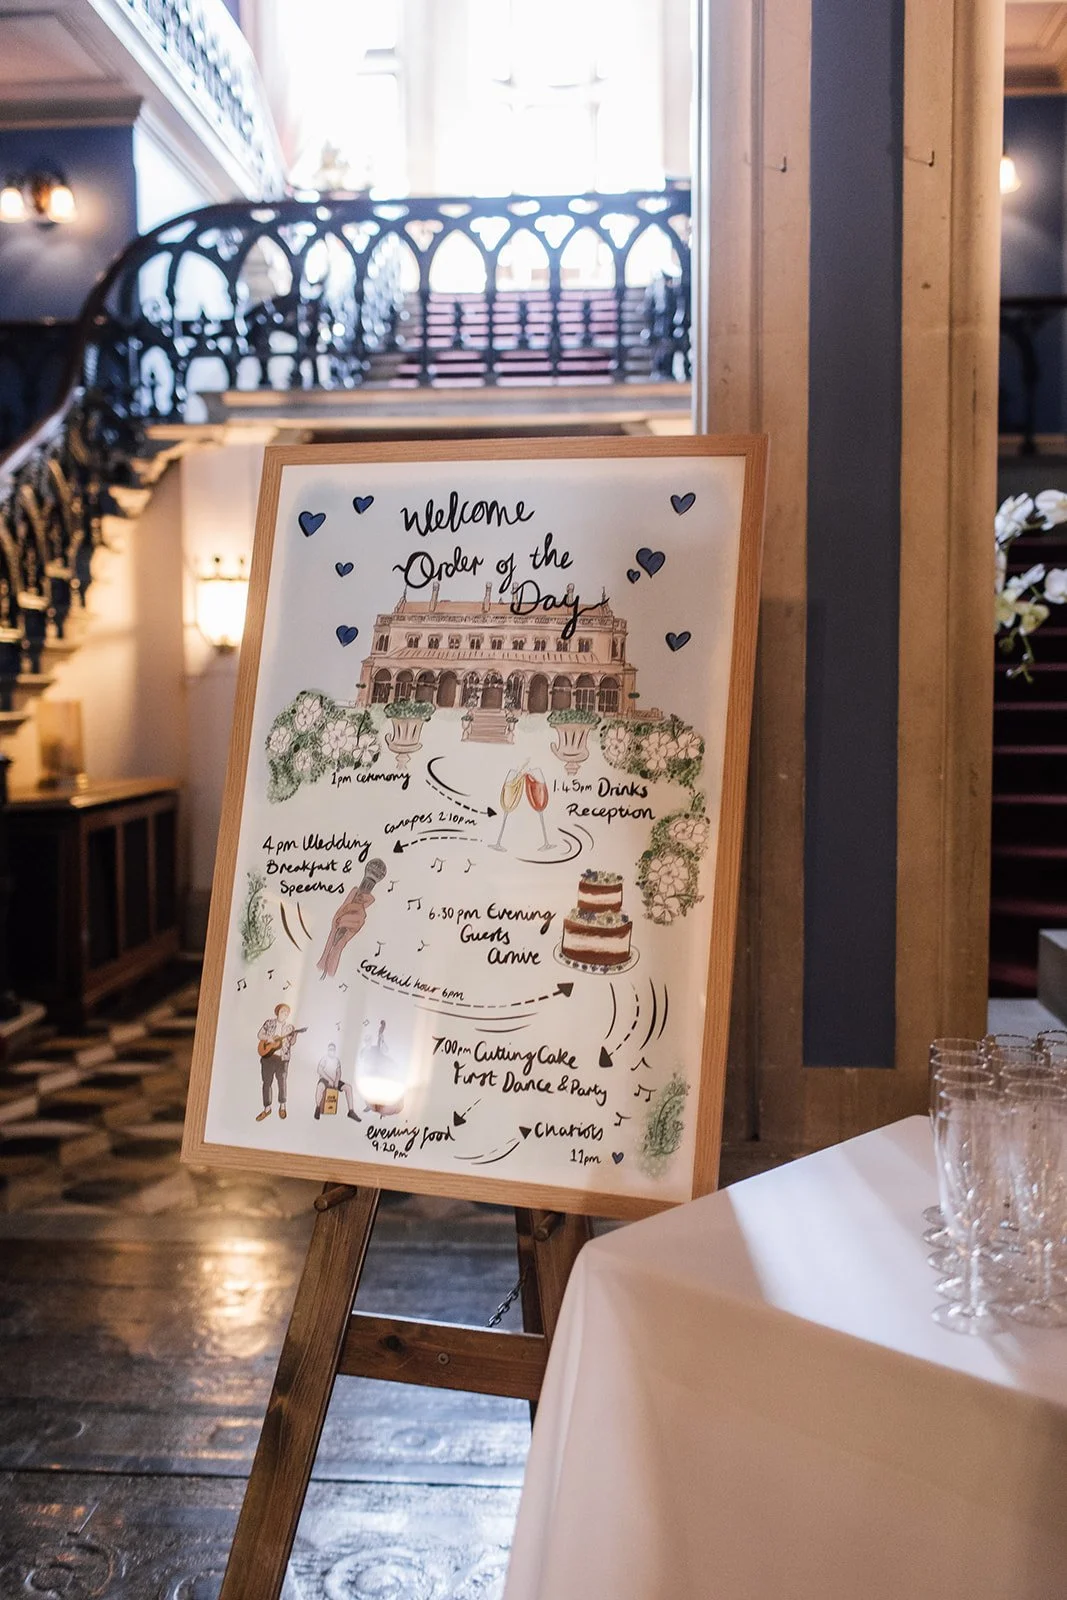 Welcome
Order of the
Day
1pm Ceremony
1.45pm Drinks
Reception
Canapes 2.10pm
4pm Wedding
Breakfast &
Speeches
6.30pm Evening
Guests
Arrive
Cocktail hour 6pm
7.00pm Cutting Cake
First Dance & Party
evening food
9.20pm
Chariots
11pm